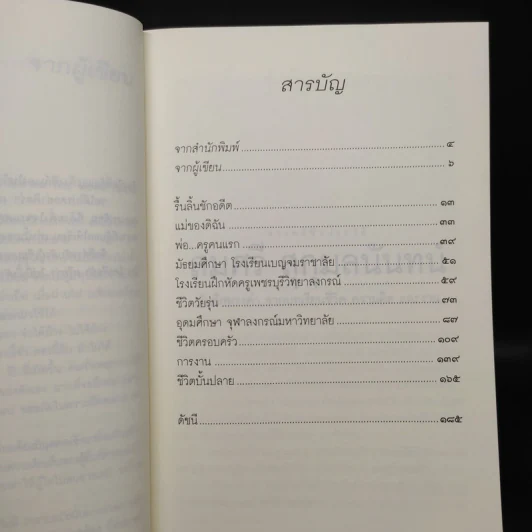 สารบัญ
จากสำนักพิมพ์ ๔
จากผู้เขียน ๖
รื้นลิ้นชักอดีต ๑๓
แม่ของดิฉัน ๓๓
พ่อ...ครูคนแรก ๓๙
มัธยมศึกษา โรงเรียนเบญจมราชาลัย ๕๑
โรงเรียนฝึกหัดครูเพชรบุรีวิทยาลงกรณ์ ๕๙
ชีวิตวัยรุ่น ๗๓
อุดมศึกษา จุฬาลงกรณ์มหาวิทยาลัย ๘๗
ชีวิตครอบครัว ๑๐๙
การงาน ๑๓๙
ชีวิตบั้นปลาย ๑๖๕
ดัชนี ๑๘๕